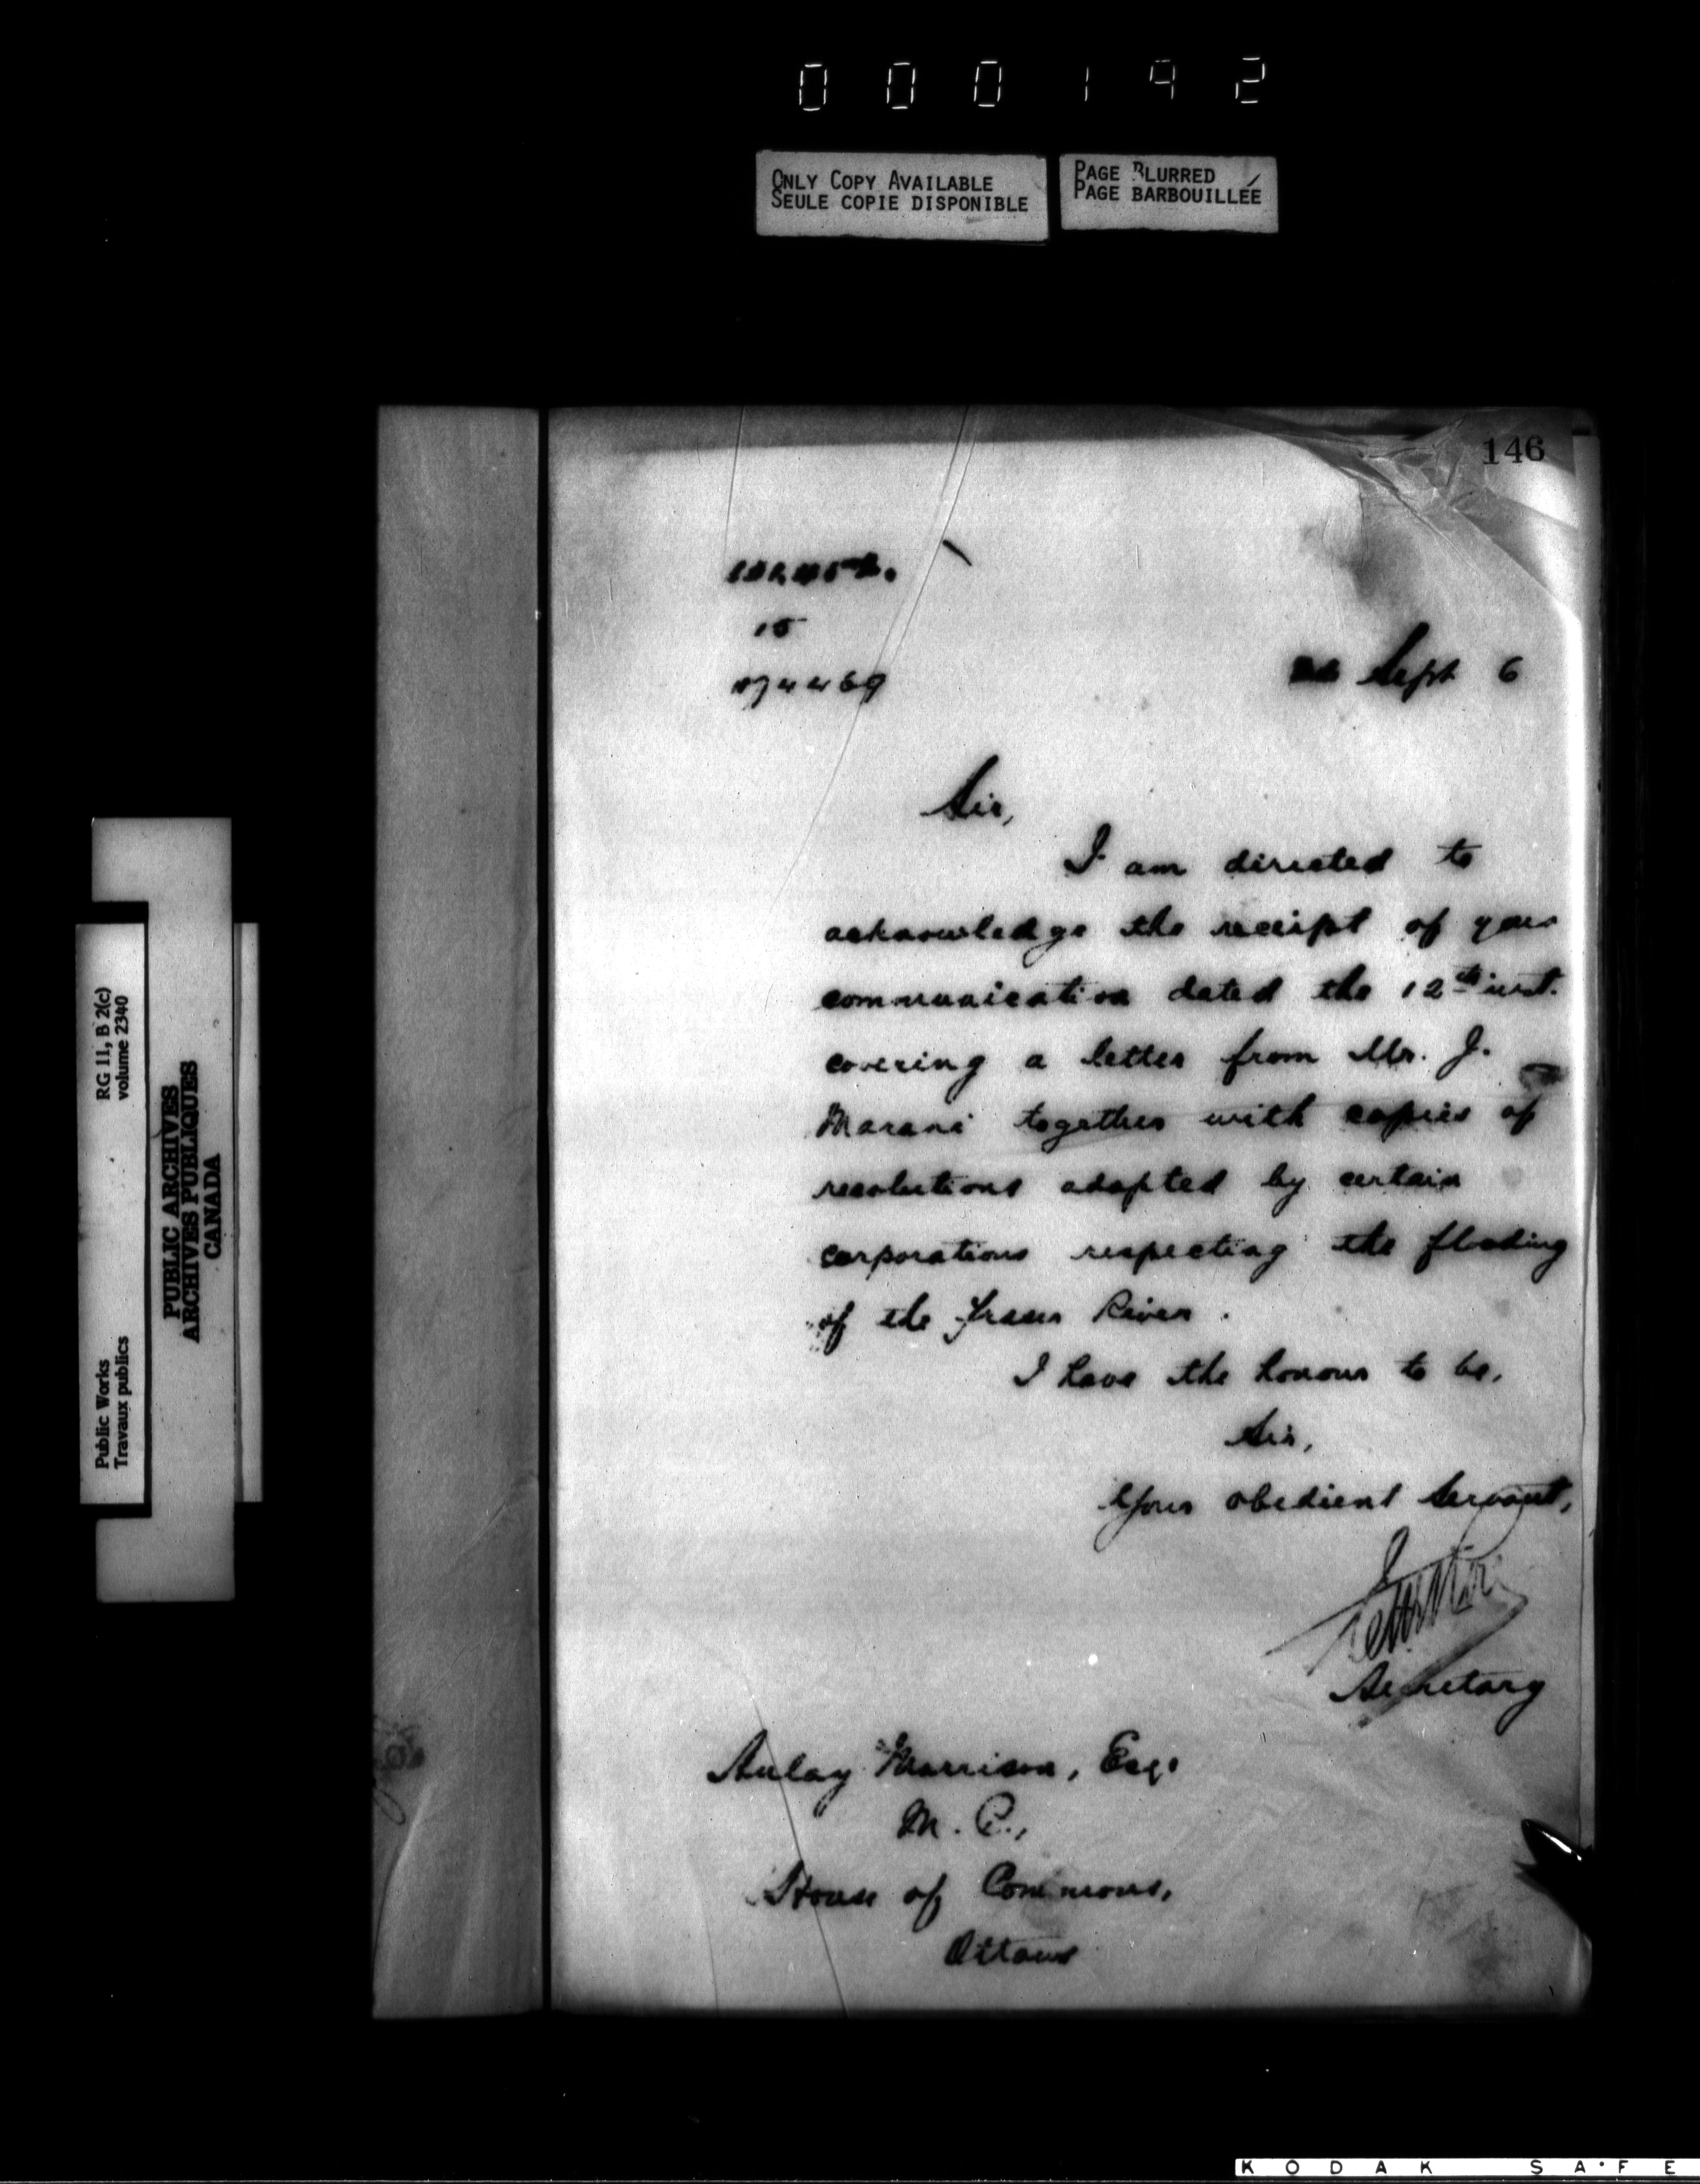 000192
ONLY COPY AVAILABLE
SEULE COPIE DISPONIBLE
PAGE BLURRED
PAGE BARBOUILLÉE
146
15
Sept 6
Sir,
I am directed to
acknowledge the receipt of your
communication dated the 12th inst.
covering a letter from Mr. J.
Marani together with copies of
resolutions adopted by certain
corporations respecting the flooding
of the Fraser River.
I have the honour to be,
Sir,
Your obedient Servant,
Secretary
Aulay Morrison, Esq.
M. P.,
House of Commons,
Ottawa
RG 11, B 2(c)
volume 2340
Public Works
Travaux publics
PUBLIC ARCHIVES
ARCHIVES PUBLIQUES
CANADA
KODAK SAFE